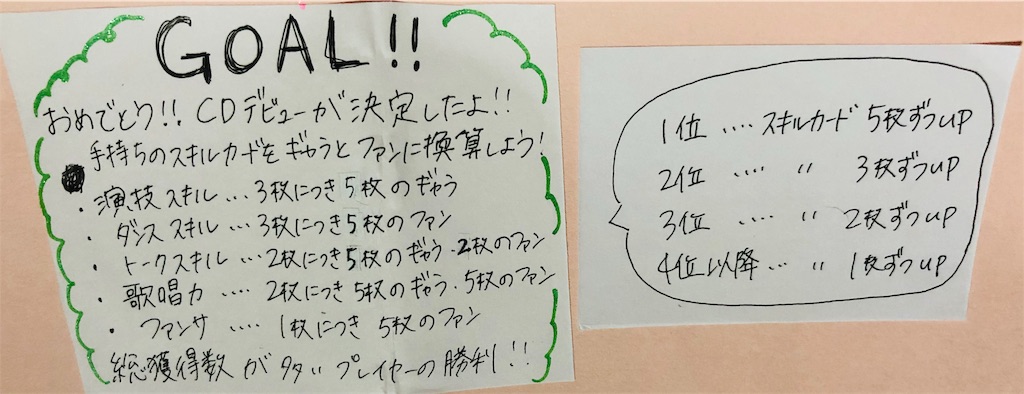 GOAL!!
おめでとう!! CDデビューが決定したよ!!
手持ちのスキルカードをギャラとファンに換算しよう!
・演技スキル…3枚につき5枚のギャラ
・ダンススキル…3枚につき5枚のファン
・トークスキル…2枚につき5枚のギャラ・2枚のファン
・歌唱力….2枚につき5枚のギャラ・5枚のファン
・ファンサ….1枚につき5枚のファン
総獲得数が多いプレイヤーの勝利!!
1位….スキルカード5枚ずつUP
2位….〃3枚ずつUP
3位….〃2枚ずつUP
4位以降…〃1枚ずつUP